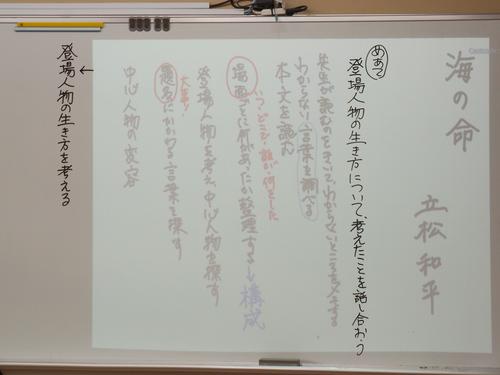 海の命
立松和平
めあて 登場人物の生き方について、考えたことを話し合おう
先生が読むのをきいてわからないところをメモする
わからない言葉を調べる
本文を読む
いつ・どこで・誰が・何をした
場面ごとに何があったか整理する→構成
登場人物を考え、中心人物を探す
大事!
題名にかかわる言葉を探す
中心人物の変容
↓
登場人物の生き方を考える